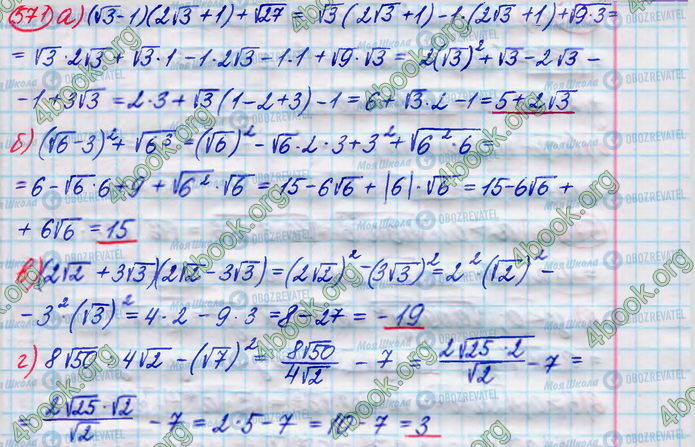 571) а) (√3-1)(2√3+1)+√27 = √3(2√3+1)-1·(2√3+1)+√9·3 =
= √3·2√3+√3·1-1·2√3-1·1+√9·√3 = 2(√3)²+√3-2√3-
-1+3√3 = 2·3+√3(1-2+3)-1 = 6+√3·2-1 = 5+2√3
б) (√6-3)²+√6³ = (√6)²-√6·2·3+3²+√6²·6 =
= 6-√6·6+9+√6²·√6 = 15-6√6+|6|·√6 = 15-6√6+
+6√6 = 15
в) (2√2+3√3)(2√2-3√3) = (2√2)²-(3√3)² = 2²·(√2)²-
-3²·(√3)² = 4·2-9·3 = 8-27 = -19
г) 8√50 : 4√2-(√7)² = 8√50/4√2 - 7 = 2√25·2/√2 - 7 =
= 2√25·√2/√2 - 7 = 2·5-7 = 10-7 = 3
4book.org
Моя Школа
OBOZREVATEL